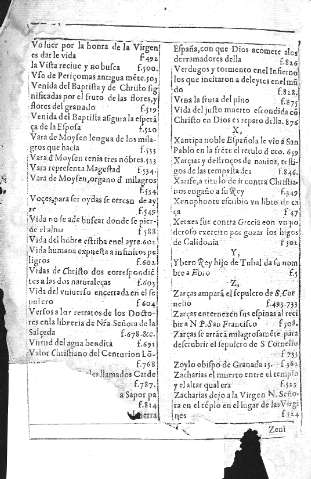 Voluer por la honra de la Virgen
es dar le vida f. 492
la Vista reciue y no busca f. 500.
Vso de Peticomas antigua mēte. 503
Venida del Baptista y de Christo sig
nificadas por el fruto de las flores, y
flores del granado f. 519.
Venida del Baptista asigura la espera
ça de la Esposa f. 520
Vara de Moysen lengua de los mila
gros que hazia f. 533
Vara d Moysen tenia tres nōbres. 533
Vara representa Magestad f. 534.
Vara de Moysen, organo d milagros
f. 534.
Voçes, para ser oydas se cercan de ay
re f. 545.
Vida no se à de buscar donde se pier-
de el alma f 588
Vida del hōbre estriba en el ayre. 602
Vida humana expuesta a infinitos pe
ligros f. 602
Vidas de Christo dos correspondiē
tes a las dos naturaleças f. 603
Vida del vniuerso encerrada en el se
pulcro f. 604
Versos a los retratos de los Docto-
res en la libreria de Nra Señora de la
Salçeda f. 678 &c.
Virtud del agua bendita f. 691
Valor Christiano del Centurion Lō-
f. 768
les llamados Carde
f. 787.
a Sapor pa
f. 814
tierra
España, con que Dios acomete a los
derramadores della f. 826
Verdugos y tormento en el Infierno
los que incitaron a deleytes en el mū
do f. 828.
Vrna la fruta del pino f. 875
Vida del justo muerto escondida cō
Christo en Dios es reparo della. 876
X,
Xantipa noble Española le vio a San
Pablo en la frēte el titulo d cro. 659
Xarcias y destroços de nauios, testi-
gos de las tempestades f. 846.
Xarife, a titulo de ir contra Christia-
nos engaño a su Rey f. 349
Xenophonte escribio vn libro de ca
ça f 47
Xerxes fue contra Grecia con vn po-
deroso exercito por gozar los higos
de Calidonia f 302
Y,
Ybero Rey hijo de Tubal da su nom
bre a Ebro f. 5
Z,
Zarças ampara el sepulcro de S. Cor
nelio f. 493-733
Zarças enternezen sus espinas al reci
bir a N P. San Francisco f. 508.
Zarças se arrācā milagrosamēte para
descubrir el sepulcro de S Cornelio
f 733
Zoylo obispo de Granada 15. f. 383
Zacharias el muerto entre el templo
y el altar qual era f. 525
Zacharias dejo a la Virgen N. Seño-
ra en el tēplo en el lugar de las Virgi
nes f. 524
Zeni